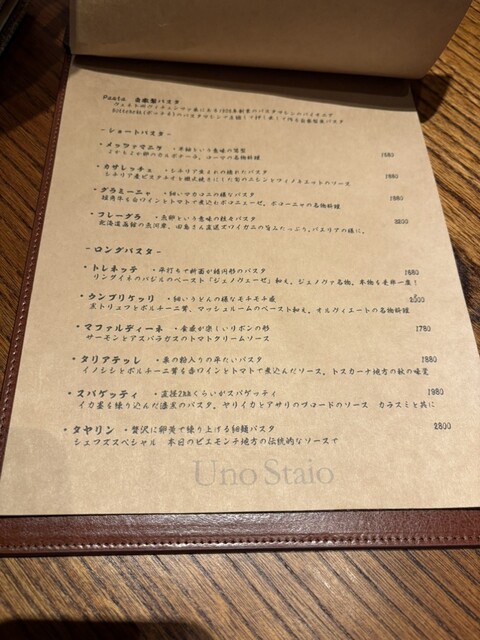 Pasta 自家製パスタ
・ショートパスタ・
・メッツァマニカ ・半袖という意味の筒型 1680
とかち とか卵のカルボナーラ、ローマの名物料理
・カサレッチェ ・シチリア生まれの捻れたパスタ 1980
・グラミーニャ ・細いマカロニの様なパスタ 1880
短角牛を白ワインとトマトで煮込むボロニェーゼ。ボローニャの名物料理
・フレーグラ ・魚卵という意味の粒々パスタ 3200
北海道函館の魚河岸、田島さん直送ズワイガニの旨みたっぷり。パエリアの様に。
・ロングパスタ・
・トレネッテ ・平打ちで断面が楕円形のパスタ 1680
リングイネのバジルのペースト「ジェノヴェーゼ」和え。ジェノヴァ名物。本物を是非一度！
・ウンブリケッリ ・細いうどんの様なモチモチ感 2500
黒トリュフとポルチーニ茸、マッシュルームのペースト和え。オルヴィエートの名物料理
・マファルディーネ ・食感が楽しいリボンの形 1780
サーモンとアスパラガスのトマトクリームソース
・タリアテッレ ・栗の粉入りの平たいパスタ 1880
イノシシとポルチーニ茸を赤ワインとトマトで煮込んだソース。トスカーナ地方の秋の味覚
・スパゲッティ ・直径2mmくらいがスパゲッティ 1980
イカ墨を練り込んだ漆黒のパスタ。ヤリイカとアサリのブロードのソース カラスミと共に
・タヤリン ・贅沢に卵黄で練り上げる細麺パスタ 2800
シェフズスペシャル 本日のピエモンテ地方の伝統的なソースで
Uno Staio